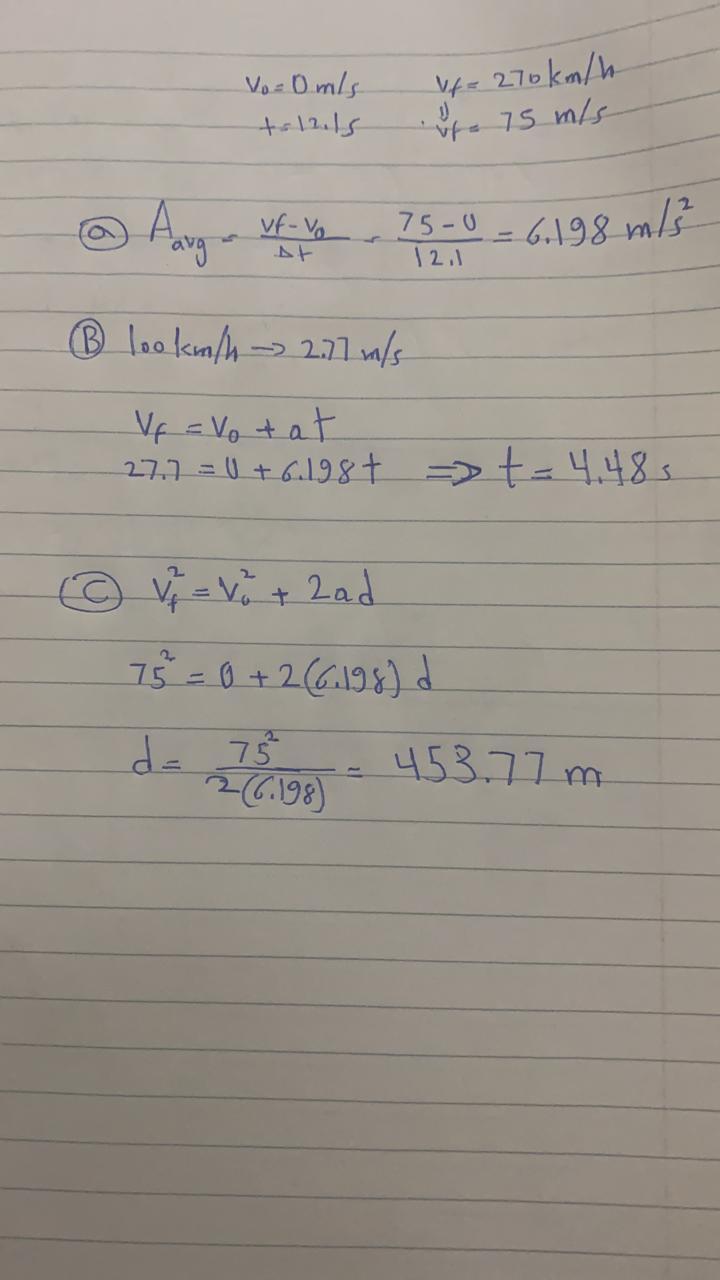 V₀ = 0 m/s    Vf = 270 km/h
t = 12.1s    Vf = 75 m/s
ⓐ A_avg = (Vf - V₀)/Δt = (75 - 0)/12.1 = 6.198 m/s²
Ⓑ 100 km/h → 2.77 m/s
Vf = V₀ + at
27.7 = 0 + 6.198t ⇒ t = 4.48 s
Ⓒ Vf² = V₀² + 2ad
75² = 0 + 2(6.198) d
d = 75²/2(6.198) = 453.77 m